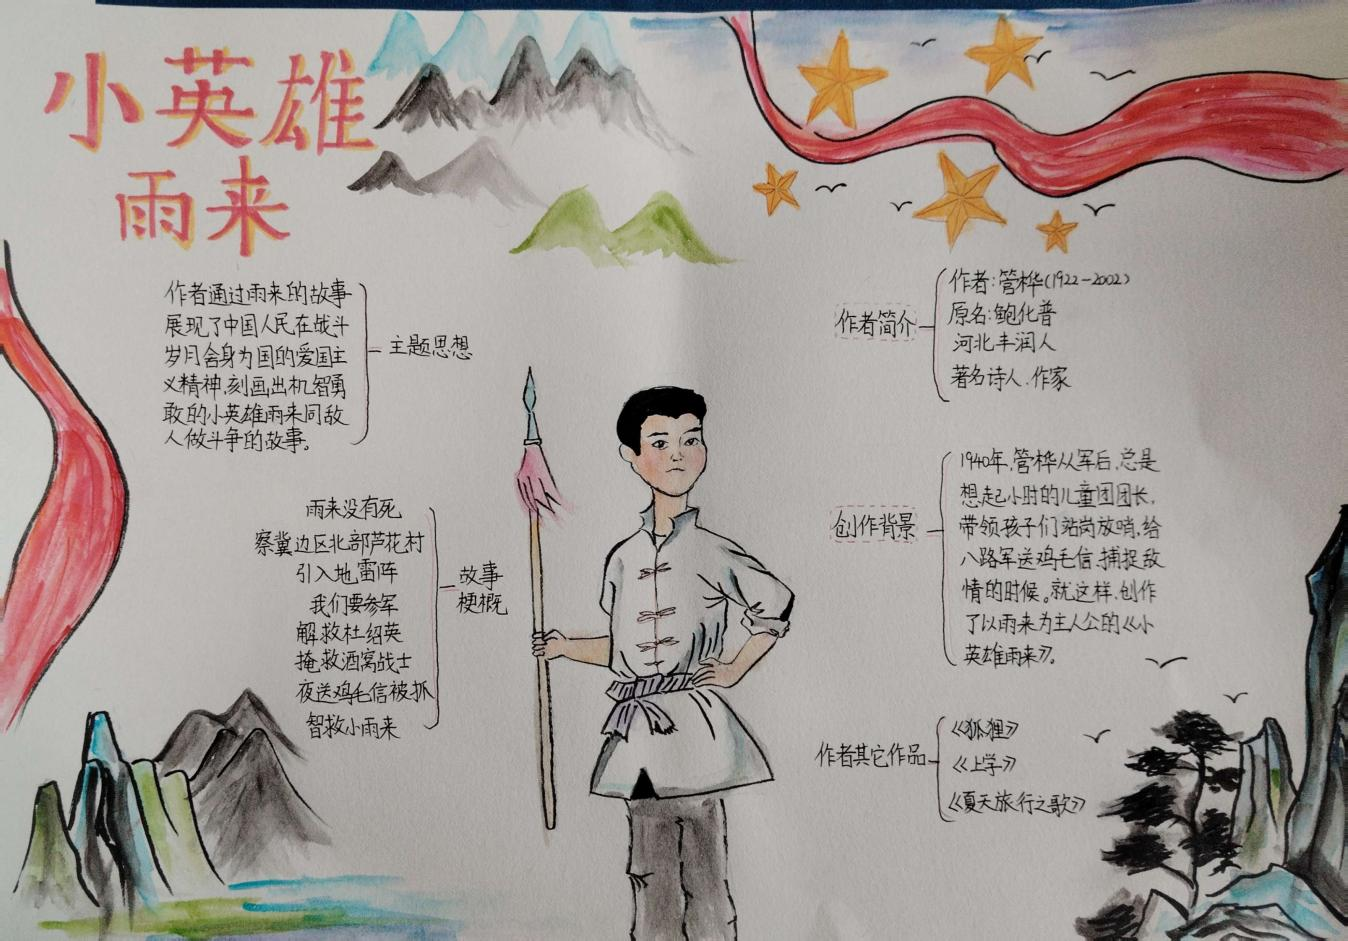 小英雄
雨来
作者通过雨来的故事
展现了中国人民在战斗
岁月舍身为国的爱国主
义精神,刻画出机智勇
敢的小英雄雨来同敌
人做斗争的故事。
主题思想
雨来没有死
察冀边区北部芦花村
引入地雷阵
我们要参军
解救杜绍英
掩救酒窝战士
夜送鸡毛信被抓
智救小雨来
故事
梗概
作者简介
作者:管桦(1922-2002)
原名:鲍化普
河北丰润人
著名诗人.作家
创作背景
1940年,管桦从军后,总是
想起小时的儿童团团长,
带领孩子们站岗放哨,给
八路军送鸡毛信,捕捉敌
情的时候。就这样,创作
了以雨来为主人公的《小
英雄雨来》。
作者其它作品
《狐狸》
《上学》
《夏天旅行之歌》